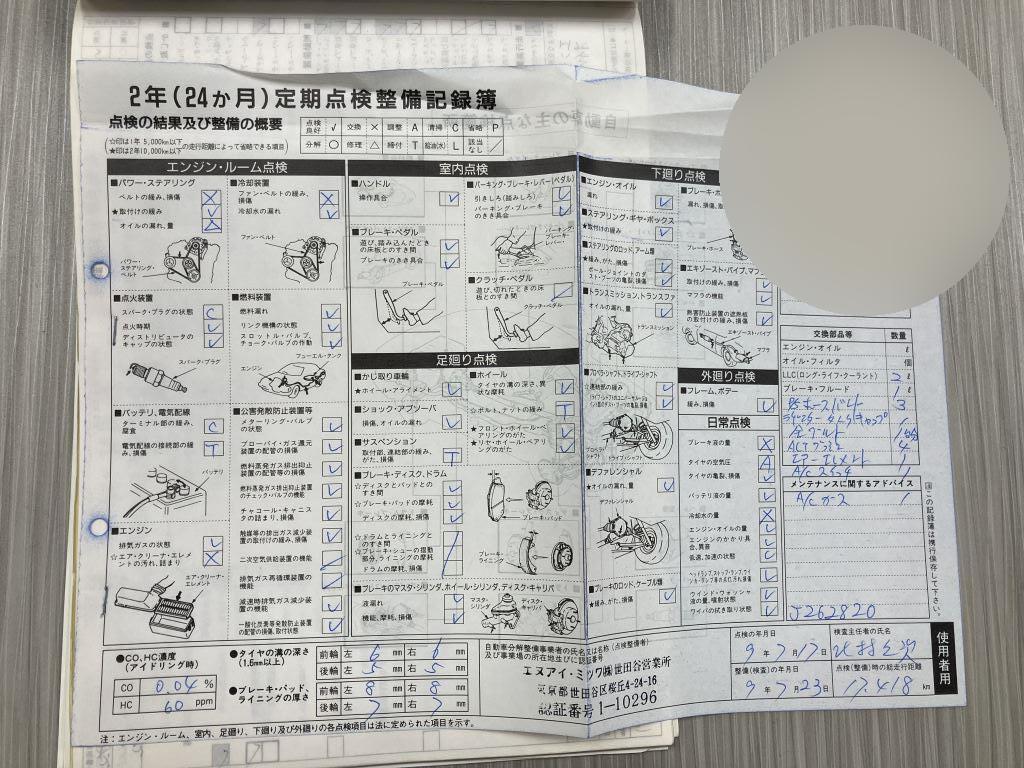 2年(24か月)定期点検整備記録簿
点検の結果及び整備の概要
☆印は1年 5,000km以下
★印は2年10,000km以下の走行距離によって省略できる項目
点検良好 ✓ 交換 × 調整 A 清掃 C 省略 P
分解 ○ 修理 △ 締付 T 給油(水) L 該当なし /
エンジン・ルーム点検
■パワー・ステアリング
ベルトの緩み、損傷
★取付けの緩み
オイルの漏れ、量
パワー・ステアリング・ベルト
■冷却装置
ファン・ベルトの緩み、損傷
冷却水の漏れ
ファン・ベルト
■点火装置
スパーク・プラグの状態 C
点火時期
ディストリビュータのキャップの状態
スパーク・プラグ
■燃料装置
燃料漏れ
リンク機構の状態
スロットル・バルブ、チョーク・バルブの作動
フューエル・タンク
エンジン
■バッテリ、電気配線
ターミナル部の緩み、腐食 C
電気配線の接続部の緩み T
バッテリ
■エンジン
排気ガスの状態
☆エア・クリーナ・エレメントの汚れ、詰まり
エア・クリーナ・エレメント
■公害発散防止装置等
メターリング・バルブの状態
ブローバイ・ガス還元装置の配管の損傷
燃料蒸発ガス排出抑止装置の配管等の損傷
燃料蒸発ガス排出抑止装置のチェック・バルブの機能
チャコール・キャニスタの詰まり、損傷
触媒等の排出ガス減少装置の取付けの緩み、損傷
二次空気供給装置の機能
排気ガス再循環装置の機能
減速時排気ガス減少装置の機能
一酸化炭素等発散防止装置の配管の損傷、取付状態
室内点検
■ハンドル
操作具合
■ブレーキ・ペダル
遊び、踏み込んだときの床板とのすき間
ブレーキのきき具合
ブレーキ・ペダル
■パーキング・ブレーキ・レバー(ペダル)
引きしろ(踏みしろ)
パーキング・ブレーキのきき具合
パーキング・ブレーキ・レバー
■クラッチ・ペダル
遊び、切れたときの床板とのすき間
クラッチ・ペダル
足廻り点検
■かじ取り車輪
★ホイール・アライメント
■ショック・アブソーバ
損傷、オイルの漏れ
■サスペンション
取付部、連結部の緩み、がた、損傷 T
■ホイール
タイヤの溝の深さ、異状な摩耗
☆ボルト、ナットの緩み T
★フロント・ホイール・ベアリングのがた
★リヤ・ホイール・ベアリングのがた
■ブレーキ・ディスク、ドラム
☆ディスクとパッドとのすき間
☆ブレーキ・パッドの摩耗
ディスクの摩耗、損傷
ブレーキ・パッド
☆ドラムとライニングとのすき間
☆ブレーキ・シューの摺動部分、ライニングの摩耗
ドラムの摩耗、損傷
ブレーキ・ライニング
■ブレーキのマスタ・シリンダ、ホイール・シリンダ、ディスク・キャリパ
液漏れ
機能、摩耗、損傷
マスタ・シリンダ
ディスク・キャリパ
下廻り点検
■エンジン・オイル
漏れ
■ステアリング・ギヤ・ボックス
★取付けの緩み
■ステアリングのロッド、アーム類
★緩み、がた、損傷
ボール・ジョイントのダスト・ブーツの亀裂、損傷
■トランスミッション、トランスファ
☆オイルの漏れ、量
トランスミッション
■プロペラ・シャフト、ドライブ・シャフト
☆連結部の緩み
ドライブ・シャフト
■デファレンシャル
★オイルの漏れ、量
デファレンシャル
■ブレーキのロッド、ケーブル類
★緩み、がた、損傷
ブレーキ・ホース
■エキゾースト・パイプ、マフ
取付けの緩み、損傷
マフラの機能
熱害防止装置の遮熱板の取付けの緩み、損傷
エキゾースト・パイプ
マフラ
外廻り点検
■フレーム、ボデー
緩み、損傷
日常点検
ブレーキ液の量
タイヤの空気圧 A
タイヤの亀裂、損傷
バッテリ液の量
冷却水の量
エンジン・オイルの量
エンジンのかかり具合、異音
低速、加速の状態
ウインド・ウォッシャ液の量、噴射状態
ワイパの拭き取り状態
交換部品等 数量
エンジン・オイル ℓ
オイル・フィルタ 個
LLC(ロング・ライフ・クーラント) 2 ℓ
ブレーキ・フルード 1 ℓ
メンテナンスに関するアドバイス
A/C ガス 1
J262820
この記録簿は携行保存して下さい。
使用者用
●CO、HC濃度
(アイドリング時)
CO 0.04 %
HC 60 ppm
●タイヤの溝の深さ
(1.6mm以上)
前輪 左 6 mm 右 6 mm
後輪 左 5 mm 右 5 mm
●ブレーキ・パッド、ライニングの厚さ
前輪 左 8 mm 右 8 mm
後輪 左 7 mm 右 7 mm
自動車分解整備事業者の氏名又は名称(点検整備者)
及び事業場の所在地並びに認証番号
世田谷営業所
東京都世田谷区桜丘4-24-16
認証番号 1-10296
点検の年月日
9年7月17日
検査主任者の氏名
整備(検査)の年月日
9年7月23日
点検(整備)時の総走行距離
17,418 km
注:エンジン・ルーム、室内、足廻り、下廻り及び外廻りの各点検項目は法に定められた項目を示す。